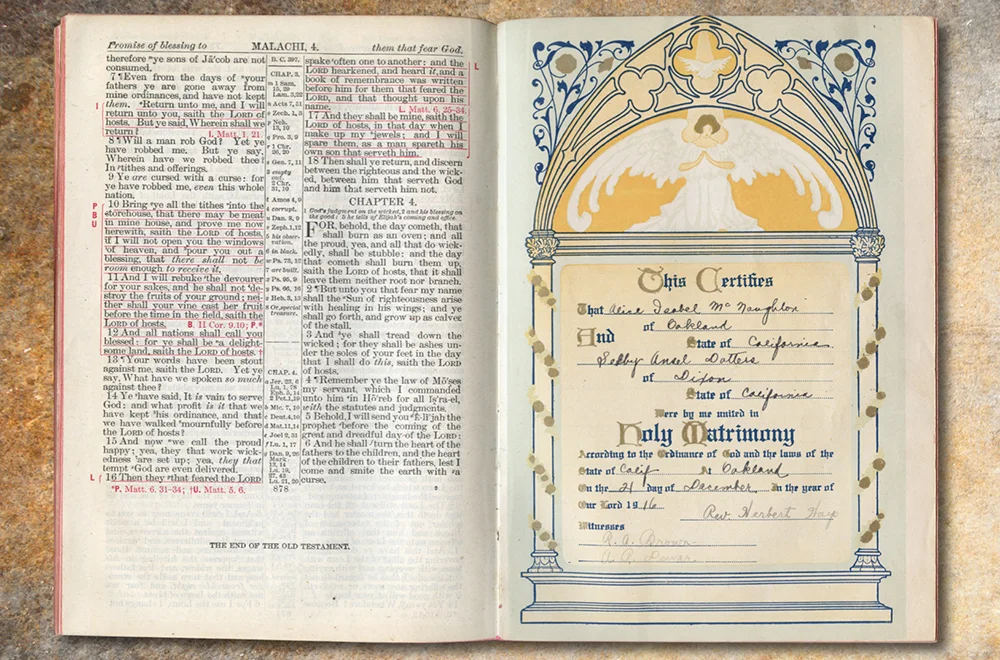 Promise of blessing to MALACHI, 4. them that fear God.
therefore ye sons of Jā'cob are not
consumed.
7 ¶ Even from the days of your
fathers ye are gone away from
mine ordinances, and have not kept
them. Return unto me, and I will
return unto you, saith the LORD of
hosts. But ye said, Wherein shall we
return? I. Matt. 1. 21.
8 ¶ Will a man rob God? Yet ye
have robbed me. But ye say,
Wherein have we robbed thee?
In tithes and offerings.
9 Ye are cursed with a curse: for
ye have robbed me, even this whole
nation.
10 Bring ye all the tithes into the
storehouse, that there may be meat
in mine house, and prove me now
herewith, saith the LORD of hosts,
if I will not open you the windows
of heaven, and pour you out a
blessing, that there shall not be
room enough to receive it.
11 And I will rebuke the devourer
for your sakes, and he shall not de-
stroy the fruits of your ground; nei-
ther shall your vine cast her fruit
before the time in the field, saith the
LORD of hosts. B. II Cor. 9.10; P.*
12 And all nations shall call you
blessed: for ye shall be a delight-
some land, saith the LORD of hosts. †
13 ¶ Your words have been stout
against me, saith the LORD. Yet ye
say, What have we spoken so much
against thee?
14 Ye have said, It is vain to serve
God: and what profit is it that we
have kept his ordinance, and that
we have walked mournfully before
the LORD of hosts?
15 And now we call the proud
happy; yea, they that work wick-
edness are set up; yea, they that
tempt God are even delivered.
16 Then they that feared the LORD
*P. Matt. 6. 31-34; †U. Matt. 5. 6.
I
P
B
U
L
B. C. 397.
CHAP. 3.
m 1 Sam.
15, 29
Lam. 3,22
n Acts 7, 51
o Zech. 1, 3
p Neh.
13, 10
q Pro. 3, 9
r 1 Chr.
26, 20
s Gen. 7, 11
3 empty
out.
2 Chr.
31, 10
t Amos 4, 9
4 corrupt.
u Dan. 8, 9
v Zeph. 1, 12
5 his obser-
vation.
6 in black.
w Ps. 73, 12
7 are built.
x Ps. 95, 9
y Ps. 66, 16
z Heb. 3, 13
8 Or, special
treasure.
CHAP. 4.
d Mal. 11, 14
878
spake often one to another: and the
LORD hearkened, and heard it, and a
book of remembrance was written
before him for them that feared the
LORD, and that thought upon his
name. L. Matt. 6. 25-34.
17 And they shall be mine, saith the
LORD of hosts, in that day when I
make up my jewels; and I will
spare them, as a man spareth his
own son that serveth him.
18 Then shall ye return, and discern
between the righteous and the wick-
ed, between him that serveth God
and him that serveth him not.
L
CHAPTER 4.
1 God's judgment on the wicked, 2 and his blessing on
the good: 5 he tells of Elijah's coming and office.
FOR, behold, the day cometh, that
shall burn as an oven; and all
the proud, yea, and all that do wick-
edly, shall be stubble: and the day
that cometh shall burn them up,
saith the LORD of hosts, that it shall
leave them neither root nor branch.
2 ¶ But unto you that fear my name
shall the Sun of righteousness arise
with healing in his wings; and ye
shall go forth, and grow up as calves
of the stall.
3 And ye shall tread down the
wicked; for they shall be ashes un-
der the soles of your feet in the day
that I shall do this, saith the LORD
of hosts.
4 ¶ Remember ye the law of Mō'ses
my servant, which I commanded
unto him in Hō'reb for all Iş'ra-el,
with the statutes and judgments.
5 Behold, I will send you Ê-lī'jah the
prophet before the coming of the
great and dreadful day of the LORD:
6 And he shall turn the heart of the
fathers to the children, and the heart
of the children to their fathers, lest I
come and smite the earth with a
curse.
THE END OF THE OLD TESTAMENT.
This Certifies
That Alice Isabel McNaughton
of Oakland
And State of California
Selby Ansel Dotters
of Dixon
State of California
Were by me united in
Holy Matrimony
According to the Ordinance of God and the laws of the
State of Calif At Oakland
On the 21 day of December In the year of
Our Lord 1916 Rev. Herbert
Witnesses
R. A. Brown